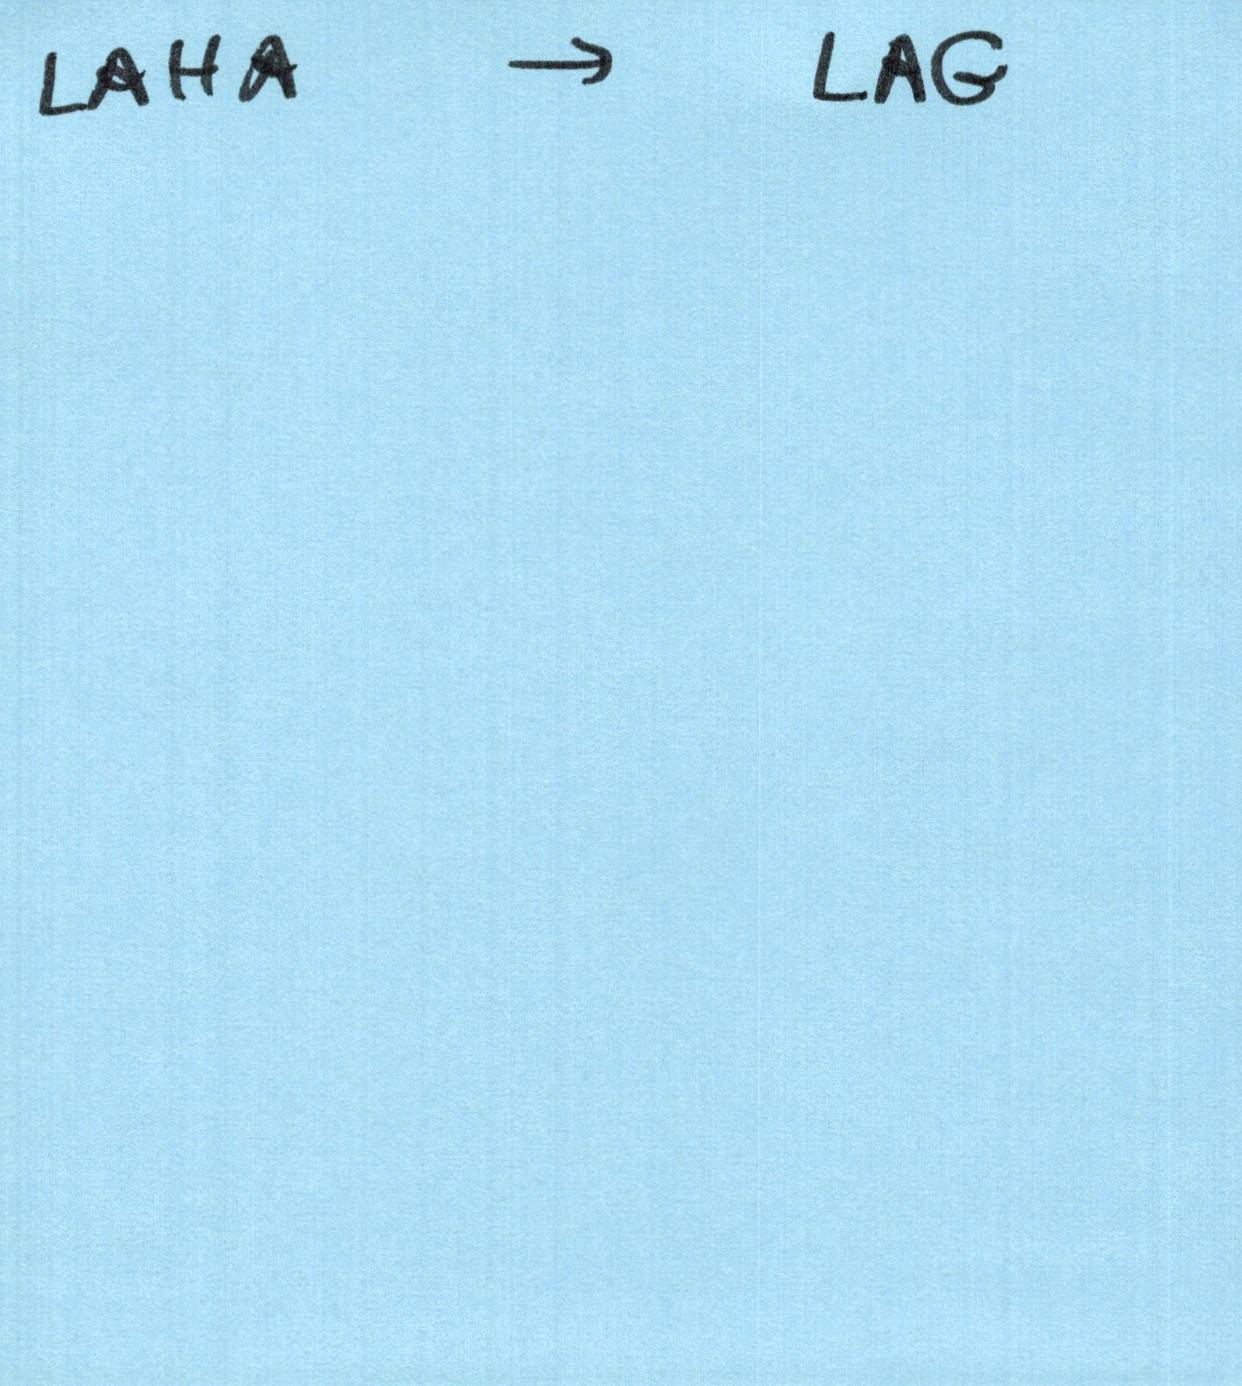 LAHA → LAG